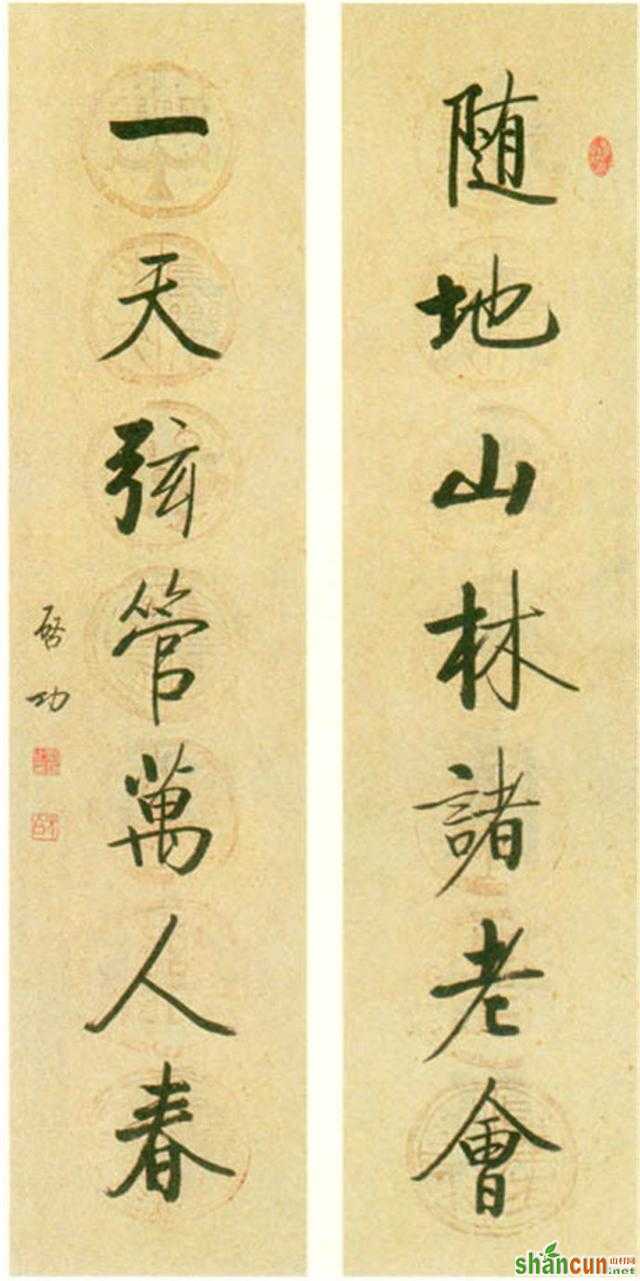 随地山林諸老會
一天弦管萬人春
啓功
shancun
山村网
.net